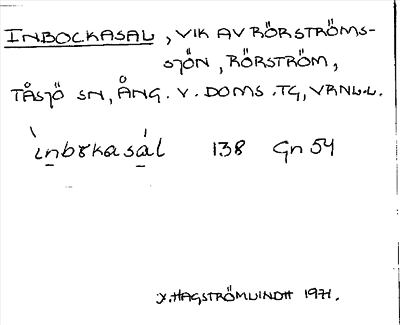 INBOCKASAL, VIK AV RÖRSTRÖMS-
SJÖN, RÖRSTRÖM,
TÅSJÖ SN, ÅNG. V. DOMS. TG, VRNL.L.
ìnbɤkasál 138 Gn 54
HAGSTRÖM 1971.